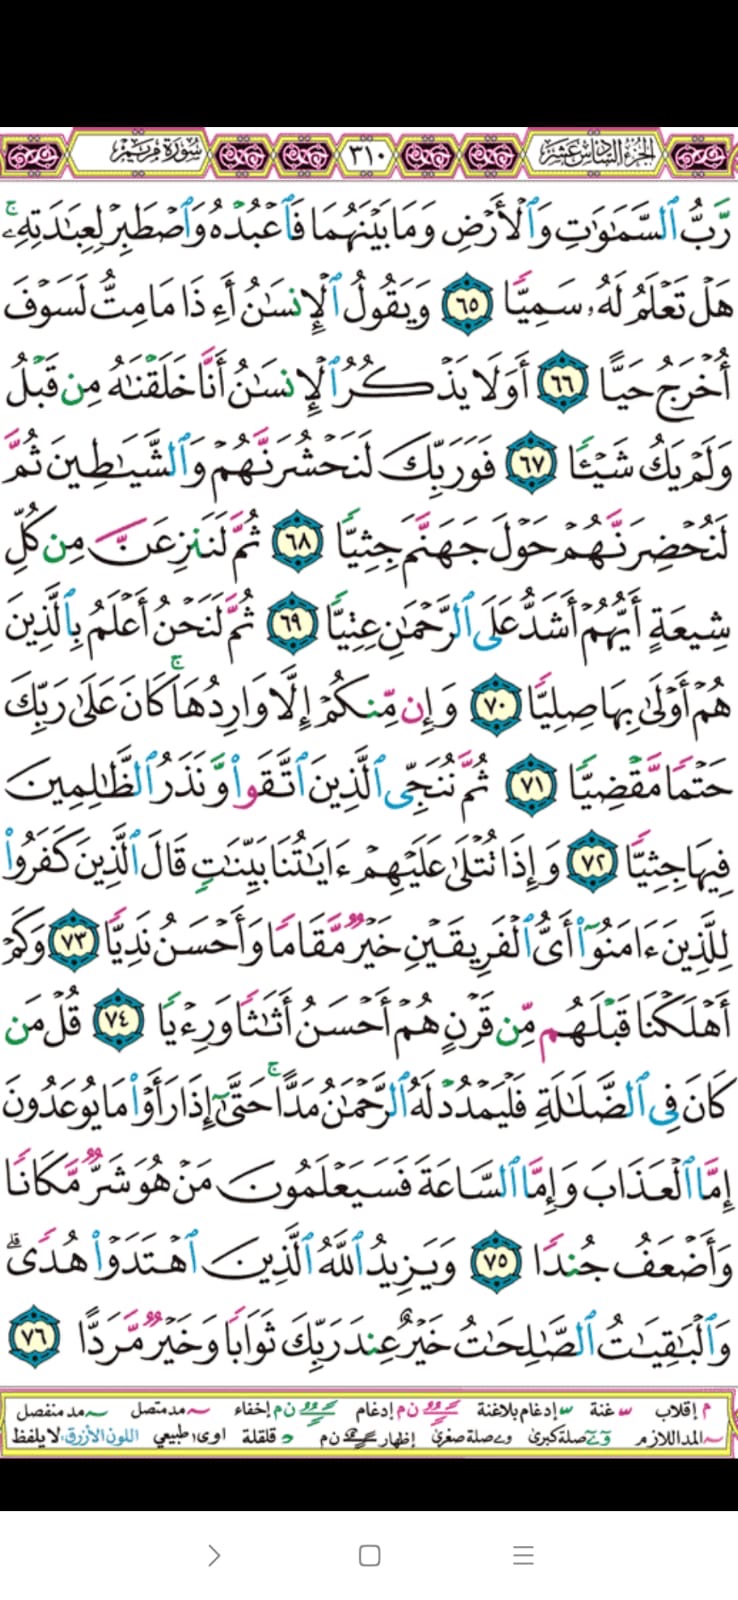 الجزء السادس عشر ٣١٠ سورة مريم
رَّبُّ ٱلسَّمَٰوَٰتِ وَٱلْأَرْضِ وَمَا بَيْنَهُمَا فَٱعْبُدْهُ وَٱصْطَبِرْ لِعِبَٰدَتِهِۦۚ
هَلْ تَعْلَمُ لَهُۥ سَمِيًّا ٦٥ وَيَقُولُ ٱلْإِنسَٰنُ أَءِذَا مَا مِتُّ لَسَوْفَ
أُخْرَجُ حَيًّا ٦٦ أَوَلَا يَذْكُرُ ٱلْإِنسَٰنُ أَنَّا خَلَقْنَٰهُ مِن قَبْلُ
وَلَمْ يَكُ شَيْـًٔا ٦٧ فَوَرَبِّكَ لَنَحْشُرَنَّهُمْ وَٱلشَّيَٰطِينَ ثُمَّ
لَنُحْضِرَنَّهُمْ حَوْلَ جَهَنَّمَ جِثِيًّا ٦٨ ثُمَّ لَنَنزِعَنَّ مِن كُلِّ
شِيعَةٍ أَيُّهُمْ أَشَدُّ عَلَى ٱلرَّحْمَٰنِ عِتِيًّا ٦٩ ثُمَّ لَنَحْنُ أَعْلَمُ بِٱلَّذِينَ
هُمْ أَوْلَىٰ بِهَا صِلِيًّا ٧٠ وَإِن مِّنكُمْ إِلَّا وَارِدُهَاۚ كَانَ عَلَىٰ رَبِّكَ
حَتْمًا مَّقْضِيًّا ٧١ ثُمَّ نُنَجِّى ٱلَّذِينَ ٱتَّقَوا۟ وَّنَذَرُ ٱلظَّٰلِمِينَ
فِيهَا جِثِيًّا ٧٢ وَإِذَا تُتْلَىٰ عَلَيْهِمْ ءَايَٰتُنَا بَيِّنَٰتٍ قَالَ ٱلَّذِينَ كَفَرُوا۟
لِلَّذِينَ ءَامَنُوٓا۟ أَىُّ ٱلْفَرِيقَيْنِ خَيْرٌ مَّقَامًا وَأَحْسَنُ نَدِيًّا ٧٣ وَكَمْ
أَهْلَكْنَا قَبْلَهُم مِّن قَرْنٍ هُمْ أَحْسَنُ أَثَٰثًا وَرِءْيًا ٧٤ قُلْ مَن
كَانَ فِى ٱلضَّلَٰلَةِ فَلْيَمْدُدْ لَهُ ٱلرَّحْمَٰنُ مَدًّاۚ حَتَّىٰٓ إِذَا رَأَوْا۟ مَا يُوعَدُونَ
إِمَّا ٱلْعَذَابَ وَإِمَّا ٱلسَّاعَةَ فَسَيَعْلَمُونَ مَنْ هُوَ شَرٌّ مَّكَانًا
وَأَضْعَفُ جُندًا ٧٥ وَيَزِيدُ ٱللَّهُ ٱلَّذِينَ ٱهْتَدَوْا۟ هُدًىۗ
وَٱلْبَٰقِيَٰتُ ٱلصَّٰلِحَٰتُ خَيْرٌ عِندَ رَبِّكَ ثَوَابًا وَخَيْرٌ مَّرَدًّا ٧٦
م إقلاب س غنة س إدغام بلاغنة ن م إدغام ن م إخفاء ~ مد متصل ~ مد منفصل
~ المد اللازم و ے صلة كبرى و ے صلة صغرى إظهار ن م د قلقلة اوى طبيعي اللون الأزرق: لا يلفظ